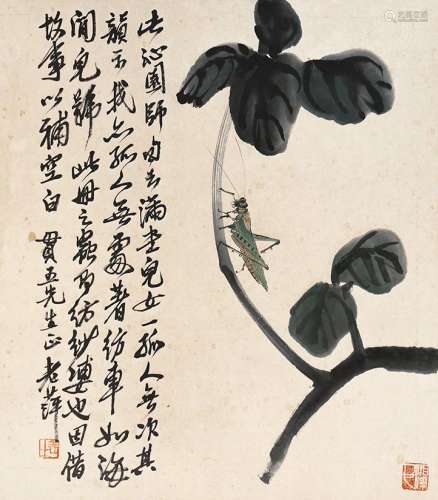 此沁園師句云滿堂兒女一孤人余次其
韻示我亦孤人無處著紡車如海
聞兒號此冊之蟲乃紡紗婆也因借
故事以補空白 貫五先生正 老萍